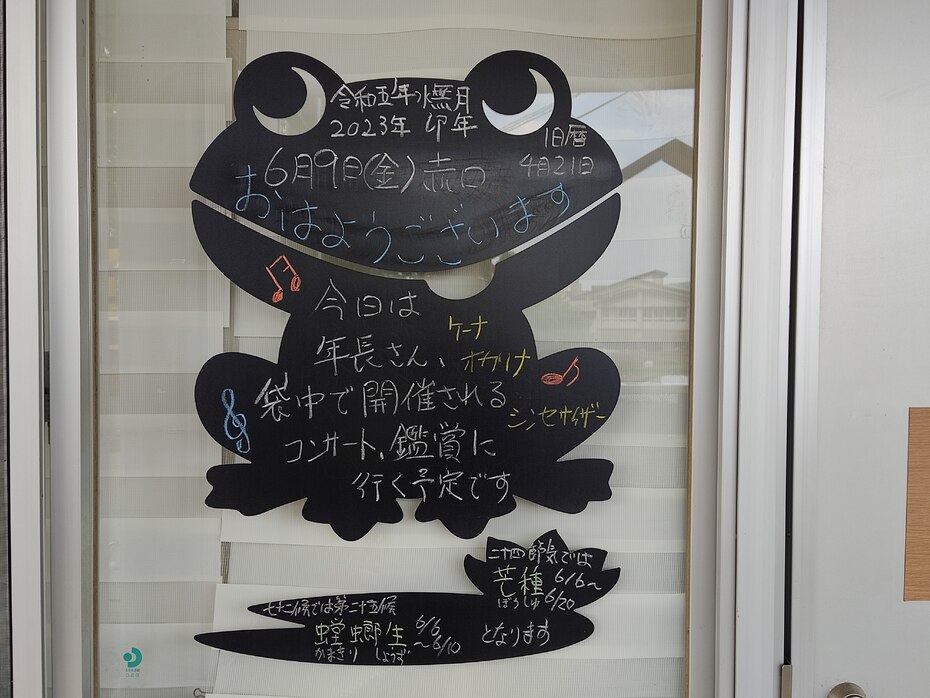 令和五年水無月
2023年 卯年
旧暦
4月21日
6月9日(金)赤口
おはようございます
今日は
年長さん、
ケーナ
オカリナ
袋中で開催される
シンセサイザー
コンサート、鑑賞に
行く予定です
二十四節気では
芒種 6/6～
ぼうしゅ 6/20
七十二候では第二十五候
蟷螂生 6/6
～6/10
かまきり しょうず
となります